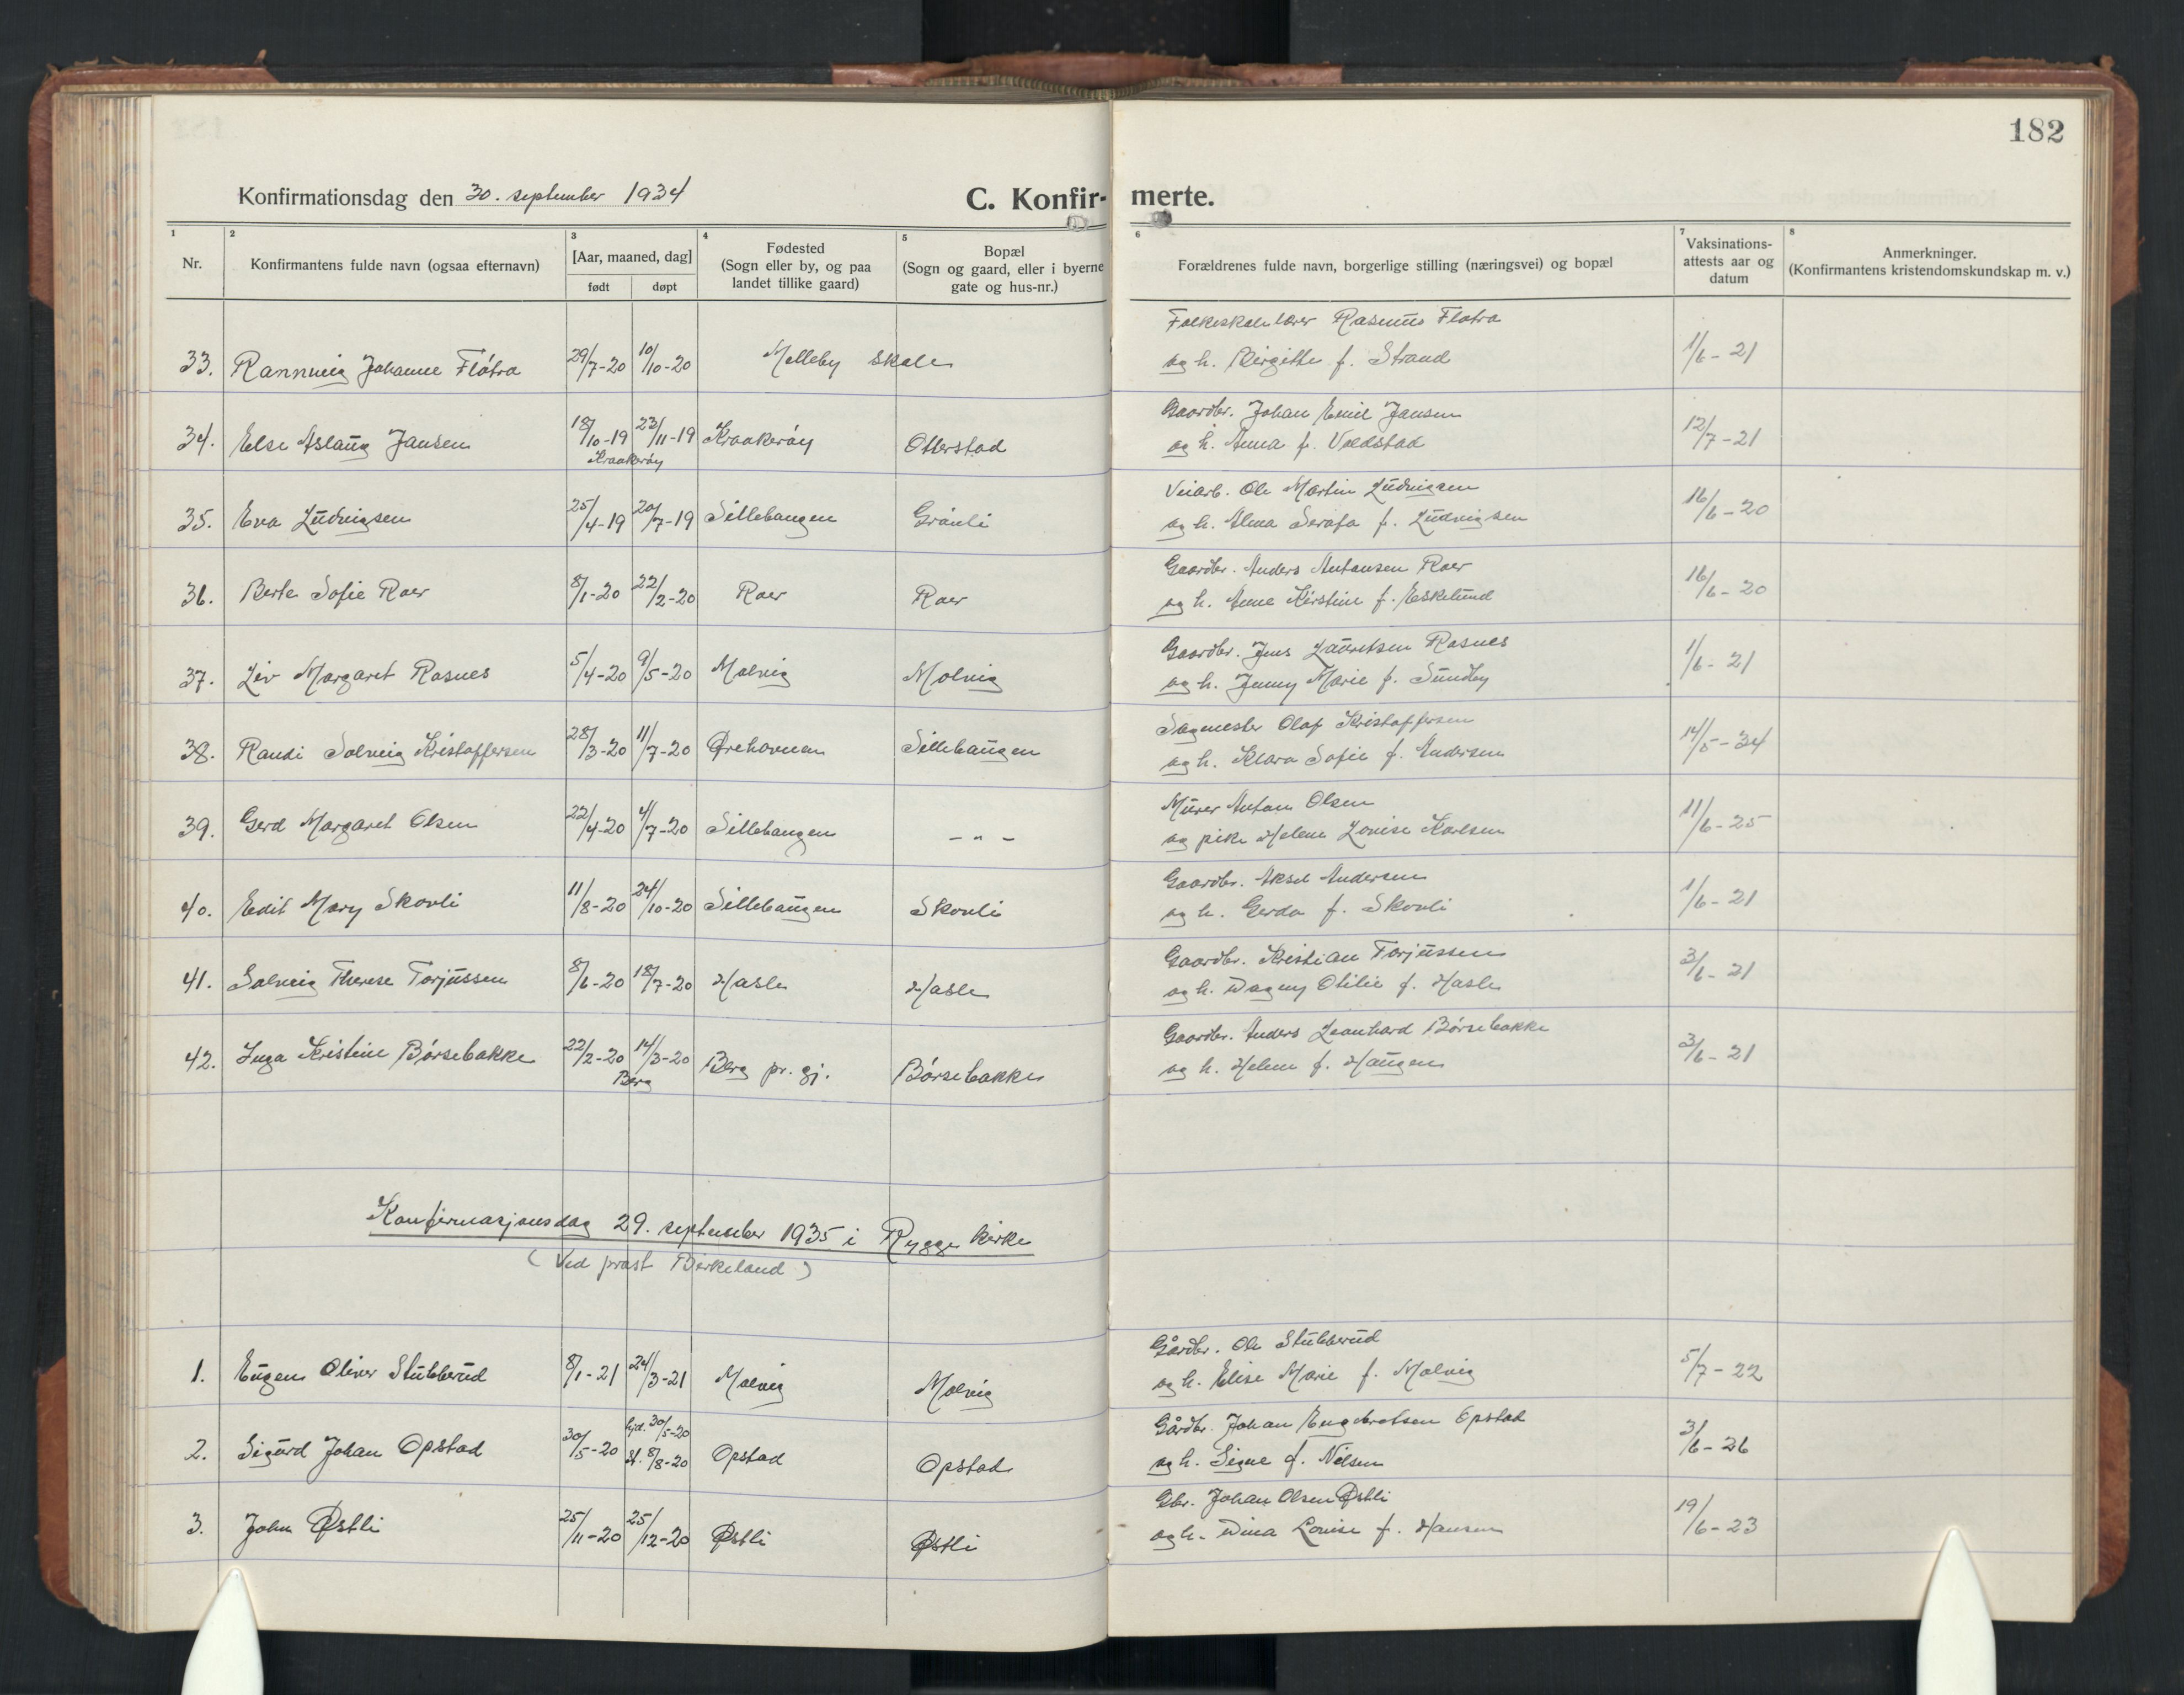 182
Konfirmationsdag den 30. september 1934 C. Konfir- merte.
1 2 3 4 5 6 7 8
Nr. Konfirmantens fulde navn (ogsaa efternavn) [Aar, maaned, dag] født døpt Fødested (Sogn eller by, og paa landet tillike gaard) Bopæl (Sogn og gaard, eller i byerne gate og hus-nr.) Forældrenes fulde navn, borgerlige stilling (næringsvei) og bopæl Vaksinations-attests aar og datum Anmerkninger. (Konfirmantens kristendomskundskap m. v.)
Folkeskolelærer Rasmus Fløtra
33. Rannveig Johanne Fløtra 29/7-20 10/10-20 Melleby skole og h. Birgitte f. Strand 1/6-21
Gaardbr. Johan Emil Jansen
34. Else Aslaug Jansen 18/10-19 23/11-19 Kraakerøy Otterstad og h. Anna f. Voldstad 12/7-21
Kraakerøy
Veiarb. Ole Martin Ludvigsen
35. Eva Ludvigsen 25/4-19 20/7-19 Sillebaugen Grønli og h. Alma Serafa f. Ludvigsen 16/6-20
Gaardbr. Anders Antonsen Roer
36. Berte Sofie Roer 8/1-20 22/2-20 Roer Roer og h. Anne Kirstine f. Eskelund 16/6-20
Gaardbr. Jens Lauritsen Rosnes
37. Liv Margaret Rosnes 5/4-20 9/5-20 Molvig Molvig og h. Jenny Marie f. Sundby 1/6-21
Sagmester Olaf Kristoffersen
38. Randi Solveig Kristoffersen 28/3-20 11/7-20 Ørehavnen Sillebaugen og h. Klara Sofie f. Andersen 14/5-34
Murer Anton Olsen
39. Gerd Margaret Olsen 22/4-20 4/7-20 Sillebaugen - " - og pike Helene Lovise Karlsen 11/6-25
Gaardbr. Aksel Andersen
40. Edit Mary Skovli 11/8-20 24/10-20 Sillebaugen Skovli og h. Gerda f. Skovli 1/6-21
Gaardbr. Kristian Torjussen
41. Solveig Therese Torjussen 8/6-20 18/7-20 Hasle Hasle og h. Dagny Otilie f. Hasle 3/6-21
Gaardbr. Anders Leonhard Børsebakke
42. Inga Kristine Børsebakke 22/2-20 14/3-20 Berg pr. gj. Børsebakke og h. Helene f. Haugen 3/6-21
Berg
Konfirmasjonsdag 29. september 1935 i Rygge kirke
(Ved prost Birkeland)
Gårdbr. Ole Stubberud
1. Eugen Oliver Stubberud 8/1-21 24/3-21 Molvig Molvig og h. Elise Marie f. Molvig 5/7-22
Gårdbr. Johan Engebretsen Opstad
2. Sigurd Johan Opstad 30/5-20 hjd. 30/5-20 st. 8/8-20 Opstad Opstad og h. Signe f. Nilsen 3/6-26
Gbr. Johan Olsen Østli
3. John Østli 25/11-20 25/12-20 Østli Østli og h. Dina Lovise f. Hansen 19/6-23